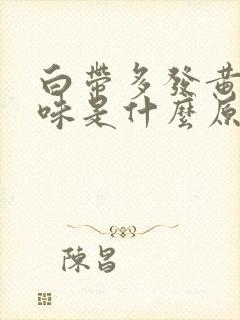 白帶多發黃
味是什麼原
陳昌